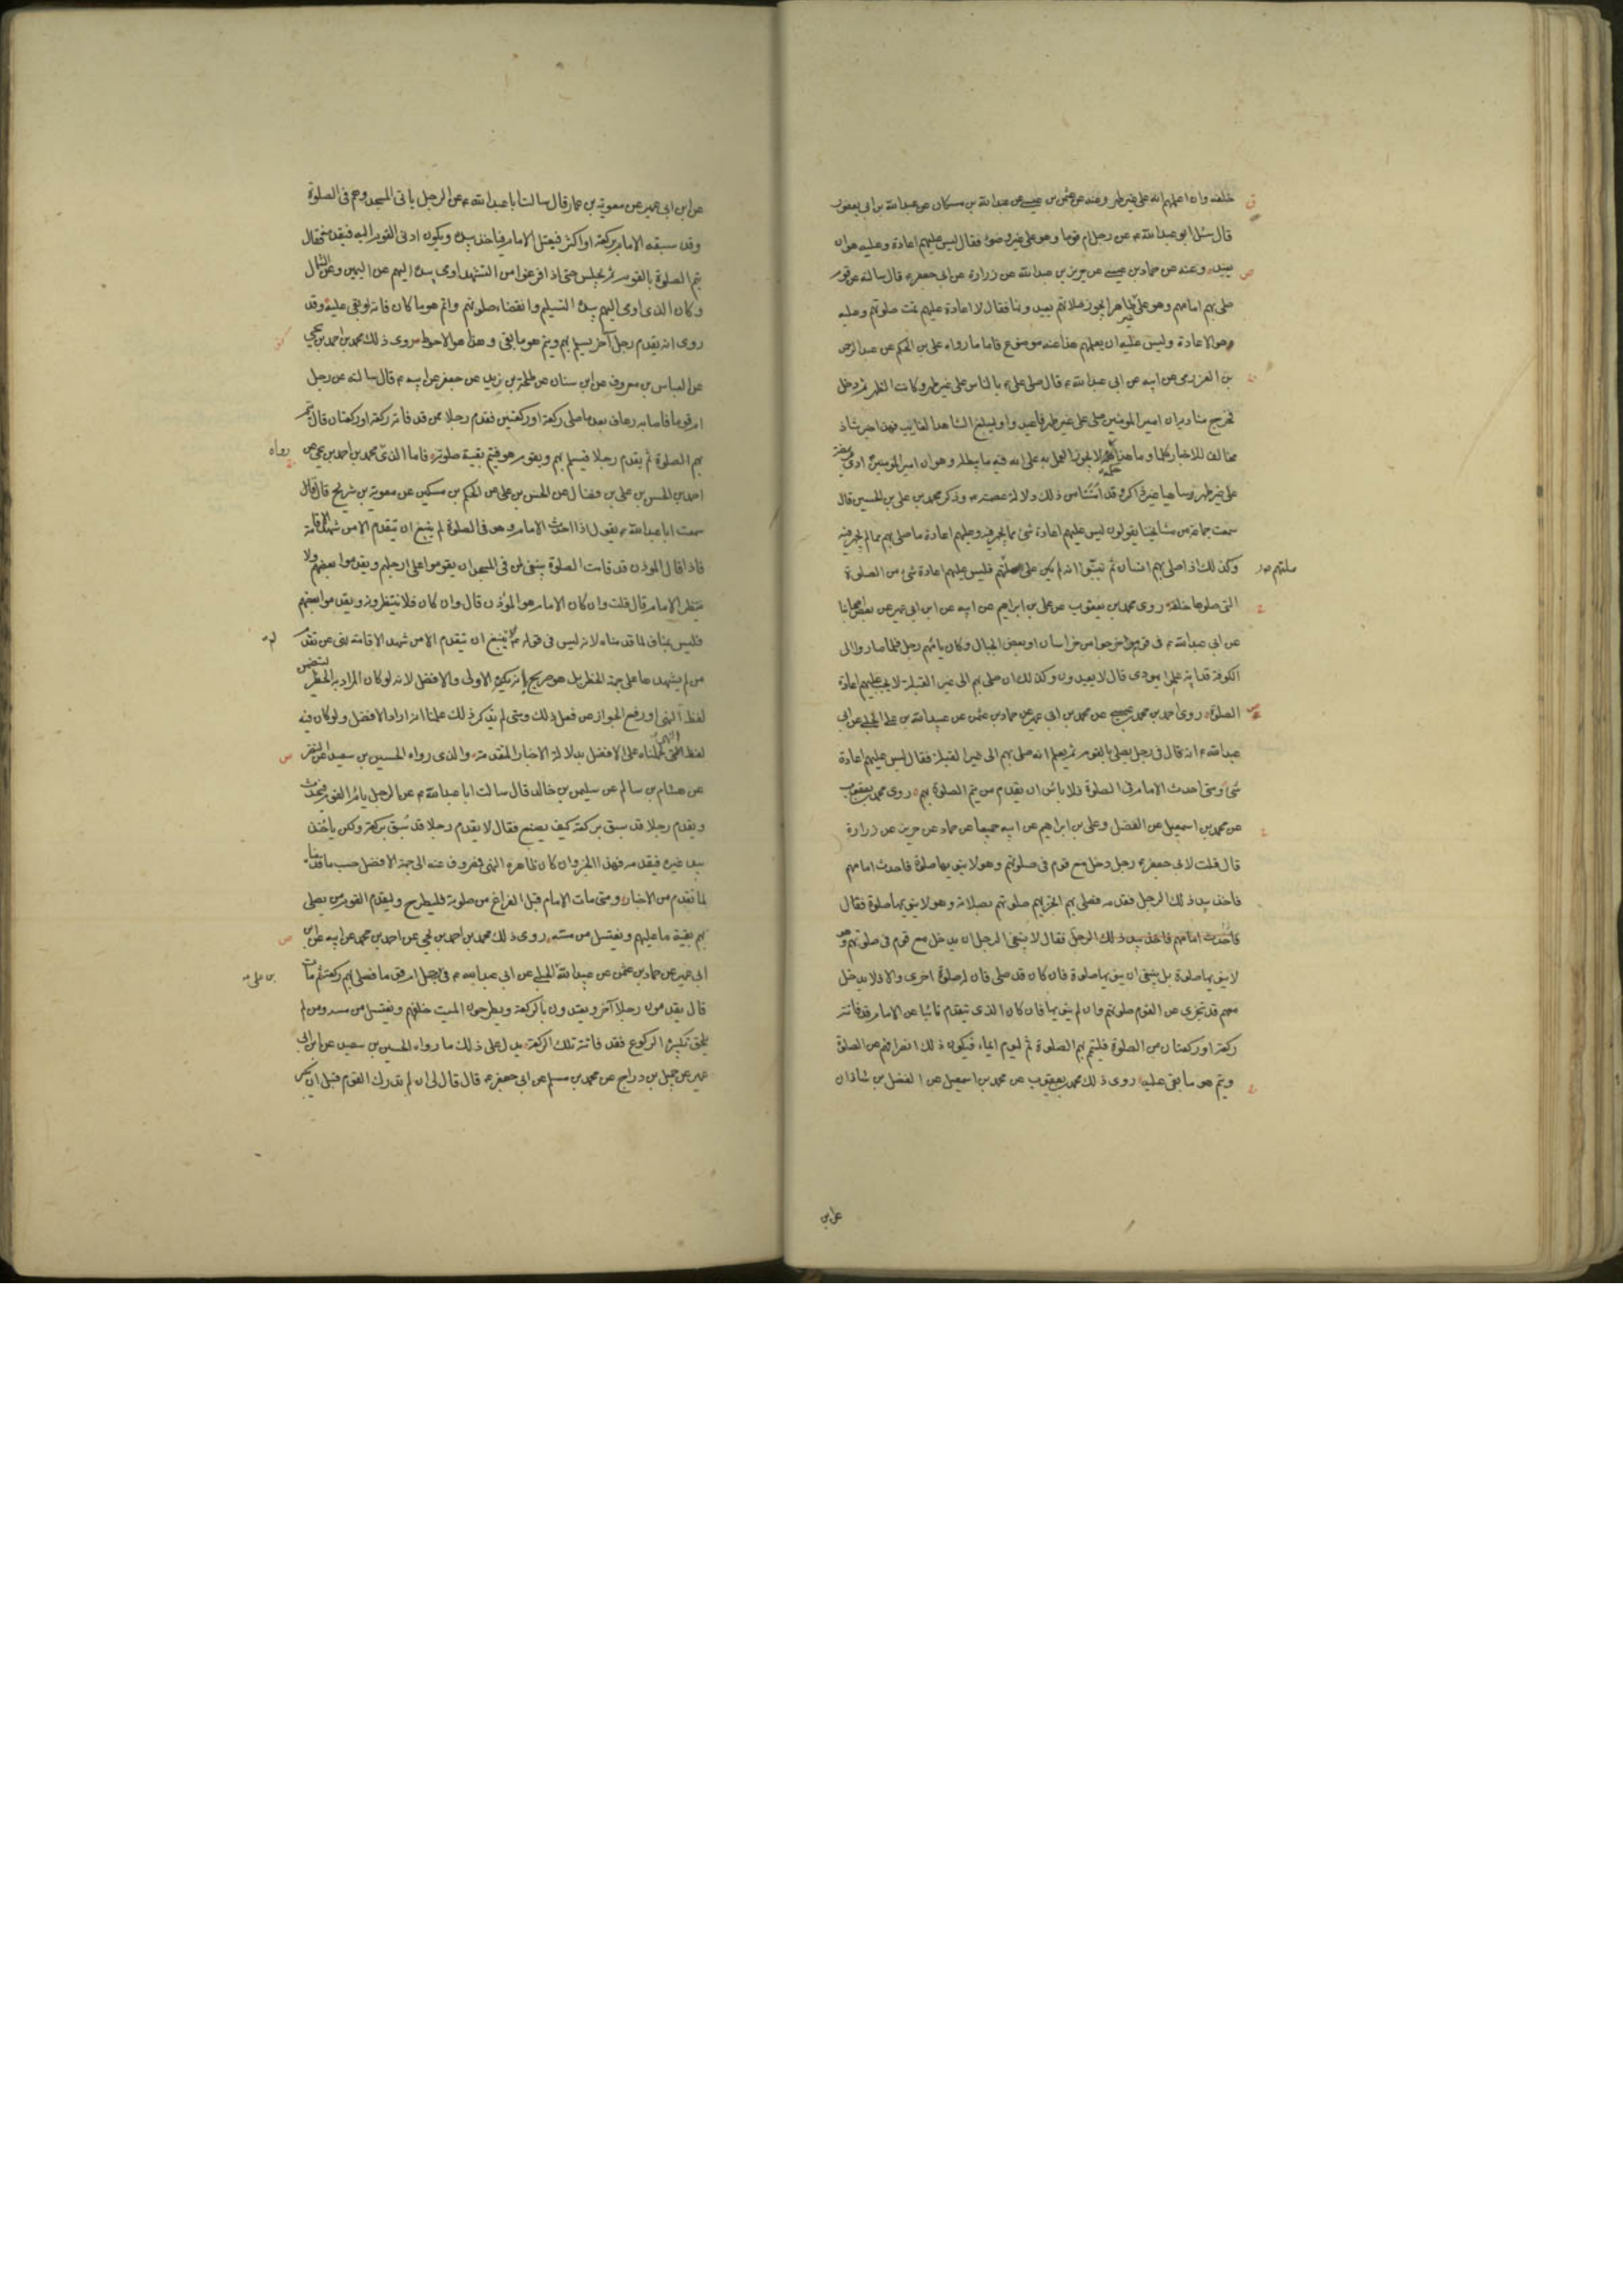 خلفه وان اعلمهم انه على غير طهر وعنه عن عثمن بن عيسى عن عبدالله بن مسكان عن عبدالله بن ابى يعفور
قال سئل ابو عبدالله ع عن رجل ام قوما وهو على غير وضوء فقال ليس عليهم اعادة وعليه هو ان
يعيد وعنه عن حماد بن عيسى عن حريز بن عبدالله عن زرارة عن ابى جعفر ع قال سالته عن قوم
صلى بهم امامهم وهو على غير طاهر ايجوز صلاتهم ام يعيدونها فقال لا اعادة عليهم تمت صلوتهم وعليه
هو الاعادة وليس عليه ان يعلمهم هذا عنه موضوع فاما ما رواه على بن الحكم عن عبد الرحمن
بن العزرمى عن ابيه عن ابى عبدالله ع قال صلى على ع بالناس على غير طهر وكانت الظهر ثم دخل
فخرج مناديه ان امير المومنين صلى على غير طهر فاعيدوا وليبلغ الشاهد الغايب فهذا خبر شاذ
مخالف للاخبار كلها وما هذا حكمه لا يجوز العمل به على انه فيه ما يبطله وهو ان امير المومنين ادى فريضة
على غير طهر ساهيا غير ذاكر وقد امنتنا من ذلك دلالة عصمته ع وذكر محمد بن على بن الحسين قال
سمعت جماعة من مشايخنا يقولون ليس عليهم اعادة شئ مما يجهر فيه وعليهم اعادة ما صلى بهم مما لم يجهر فيه
وكذلك اذا صلى بهم انسان ثم تبينوا انه لم يكن على ملتهم فليس عليهم اعادة شئ من الصلوة
ملتهم
التى صلوها خلفه روى محمد بن يعقوب عن على بن ابراهيم عن ابيه عن ابن ابى عمير عن بعض اصحابنا
عن ابى عبدالله ع فى قوم خرجوا من خراسان او بعض الجبال وكان يامهم رجل فلما صاروا الى
الكوفة علموا انه يهودى قال لا يعيدون وكذلك ان صلى بهم الى غير القبلة لا يجب عليهم اعادة
الصلوة روى احمد بن محمد بن عيسى عن محمد بن ابى عمير عن حماد بن عثمن عن عبيدالله بن على الحلبى عن ابى
عبدالله ع انه قال فى رجل يصلى بالقوم ثم يعلم انه صلى بهم الى غير القبلة فقال ليس عليهم اعادة
شئ ومتى احدث الامام فى الصلوة فلا باس ان يقدم من يتم الصلوة بهم روى محمد بن يعقوب
عن محمد بن اسمعيل عن الفضل وعلى بن ابراهيم عن ابيه جميعا عن حماد عن حريز عن زرارة
قال قلت لابى جعفر ع رجل دخل مع قوم فى صلوتهم وهو لا ينويها صلوة فاحدث امامهم
فاخذ بيد ذلك الرجل فقدمه فصلى بهم ايجزيهم صلوتهم بصلاته وهو لا ينويها صلوة فقال
فاحدث امامهم فاخذ بيد ذلك الرجل فقال لا ينبغى للرجل ان يدخل مع قوم فى صلوتهم وهو
لا ينويها صلوة بل ينبغى ان ينويها صلوة فان كان قد صلى فان له صلوة اخرى والا فلا يدخل
معهم قد تجزى عن القوم صلوتهم وان لم ينويها فان كان الذى تيقدم نائبا عن الامام قد فاتته
ركعة او ركعتان من الصلوة فليتم بهم الصلوة ثم ليوم ايماء فيكون ذلك انصرافهم عن الصلوة
ويتم هو ما بقى عليه روى ذلك محمد بن يعقوب عن محمد بن اسمعيل عن الفضل بن شاذان
عن ابن
عن ابن ابى عمير عن معوية بن عمار قال سالت ابا عبدالله ع عن الرجل ياتى المسجد وهم فى الصلوة
وقد سبقه الامام بركعة او اكثر فيعتل الامام فياخذ بيده ويكون ادنى القوم اليه فيقدمه فقال
يتم الصلوة بالقوم ثم يجلس حتى اذا فرغوا من التشهد اومى بيده اليهم عن اليمين وعن الشمال
وكان الذى اومى اليهم بيده التسليم وانقضاء صلوتهم واتم هو ما كان فاته او بقى عليه وقد
روى انه يقدم رجل آخر يسلم بهم ويتم هو ما بقى وهذا هو الاحوط روى ذلك محمد بن احمد بن يحيى
عن العباس بن معروف عن ابن سنان عن طلحة بن زيد عن جعفر عن ابيه ع قال سالته عن رجل
ام قوما فاصابه رعاف بعد ما صلى ركعة او ركعتين فقدم رجلا ممن قد فاته ركعة او ركعتان قال يتم
بهم الصلوة ثم يقدم رجلا فيسلم بهم ويقوم هو فيتم بقية صلوته فاما الذى محمد بن احمد بن يحيى عن
رواه
احمد بن الحسن بن على بن فضال عن الحسن بن على عن الحكم بن مسكين عن معوية بن شريح قال
سمعت ابا عبدالله ع يقول اذا احدث الامام وهو فى الصلوة لم ينبغ ان تيقدم الا من شهد الاقامة
فاذا قال الموذن قد قامت الصلوة ينبغى لمن فى المسجد ان يقوموا على ارجلهم ويقدموا بعضهم ولا
ينتظر الامام قال قلت وان كان الامام هو المؤذن قال وان كان فلا ينتظرونه ويقدموا بعضهم
فليس بمناف لما قدمناه لانه ليس فى قوله ع لا ينبغ ان تيقدم الا من شهد الاقامة نهى عن تقدم
لم
من لم يشهدها على جهة الحظر بل هو صريح بانه يكره الاولى والافضل لانه لو كان المراد به الحظر لتضمن
لفظ النهى او رفع الجواز عن فعل ذلك ومتى لم يذكر ذلك علمنا انه اراد الافضل ولو كان فيه
لفظ النهى لحملناه على الافضل بدلالة الاخبار المتقدمة والذى رواه الحسين بن سعيد عن النضر
عن هشام بن سالم عن سليمن بن خالد قال سالت ابا عبدالله ع عن الرجل يام القوم فيحدث
ويقدم رجلا قد سبق بركعة كيف يصنع فقال لا يقدم رجلا قد سبق بركعة ولكن ياخذ
بيد غيره فيقدمه فهذا الخبر وان كان ظاهره النهى فمصروف عنه الى جهة الافضل حسب ما قدمناه
لما تقدم من الاخبار ومتى مات الامام قبل الفراغ من صلوته فليطرح وليقدم القوم من يصلى
بهم بقية ما عليهم ويغتسل من مسه روى ذلك محمد بن احمد بن يحيى عن احمد بن محمد عن ابيه عن ابن
ابى عمير عن حماد بن عثمن عن عبيدالله الحلبى عن ابى عبدالله ع فى رجل ام قوما فصلى بهم ركعة ثم مات
بن على
قال يقدمون رجلا آخر ويعتدون بالركعة ويطرحون الميت خلفهم ويغتسل من مسه ومن لم
يلحق تكبيرة الركوع فقد فاتته تلك الركعة يدل على ذلك ما رواه الحسين بن سعيد عن ابن ابى
عمير عن جميل بن دراج عن محمد بن مسلم عن ابى جعفر ع قال قال لى ان لم تدرك القوم قبل ان يكبر